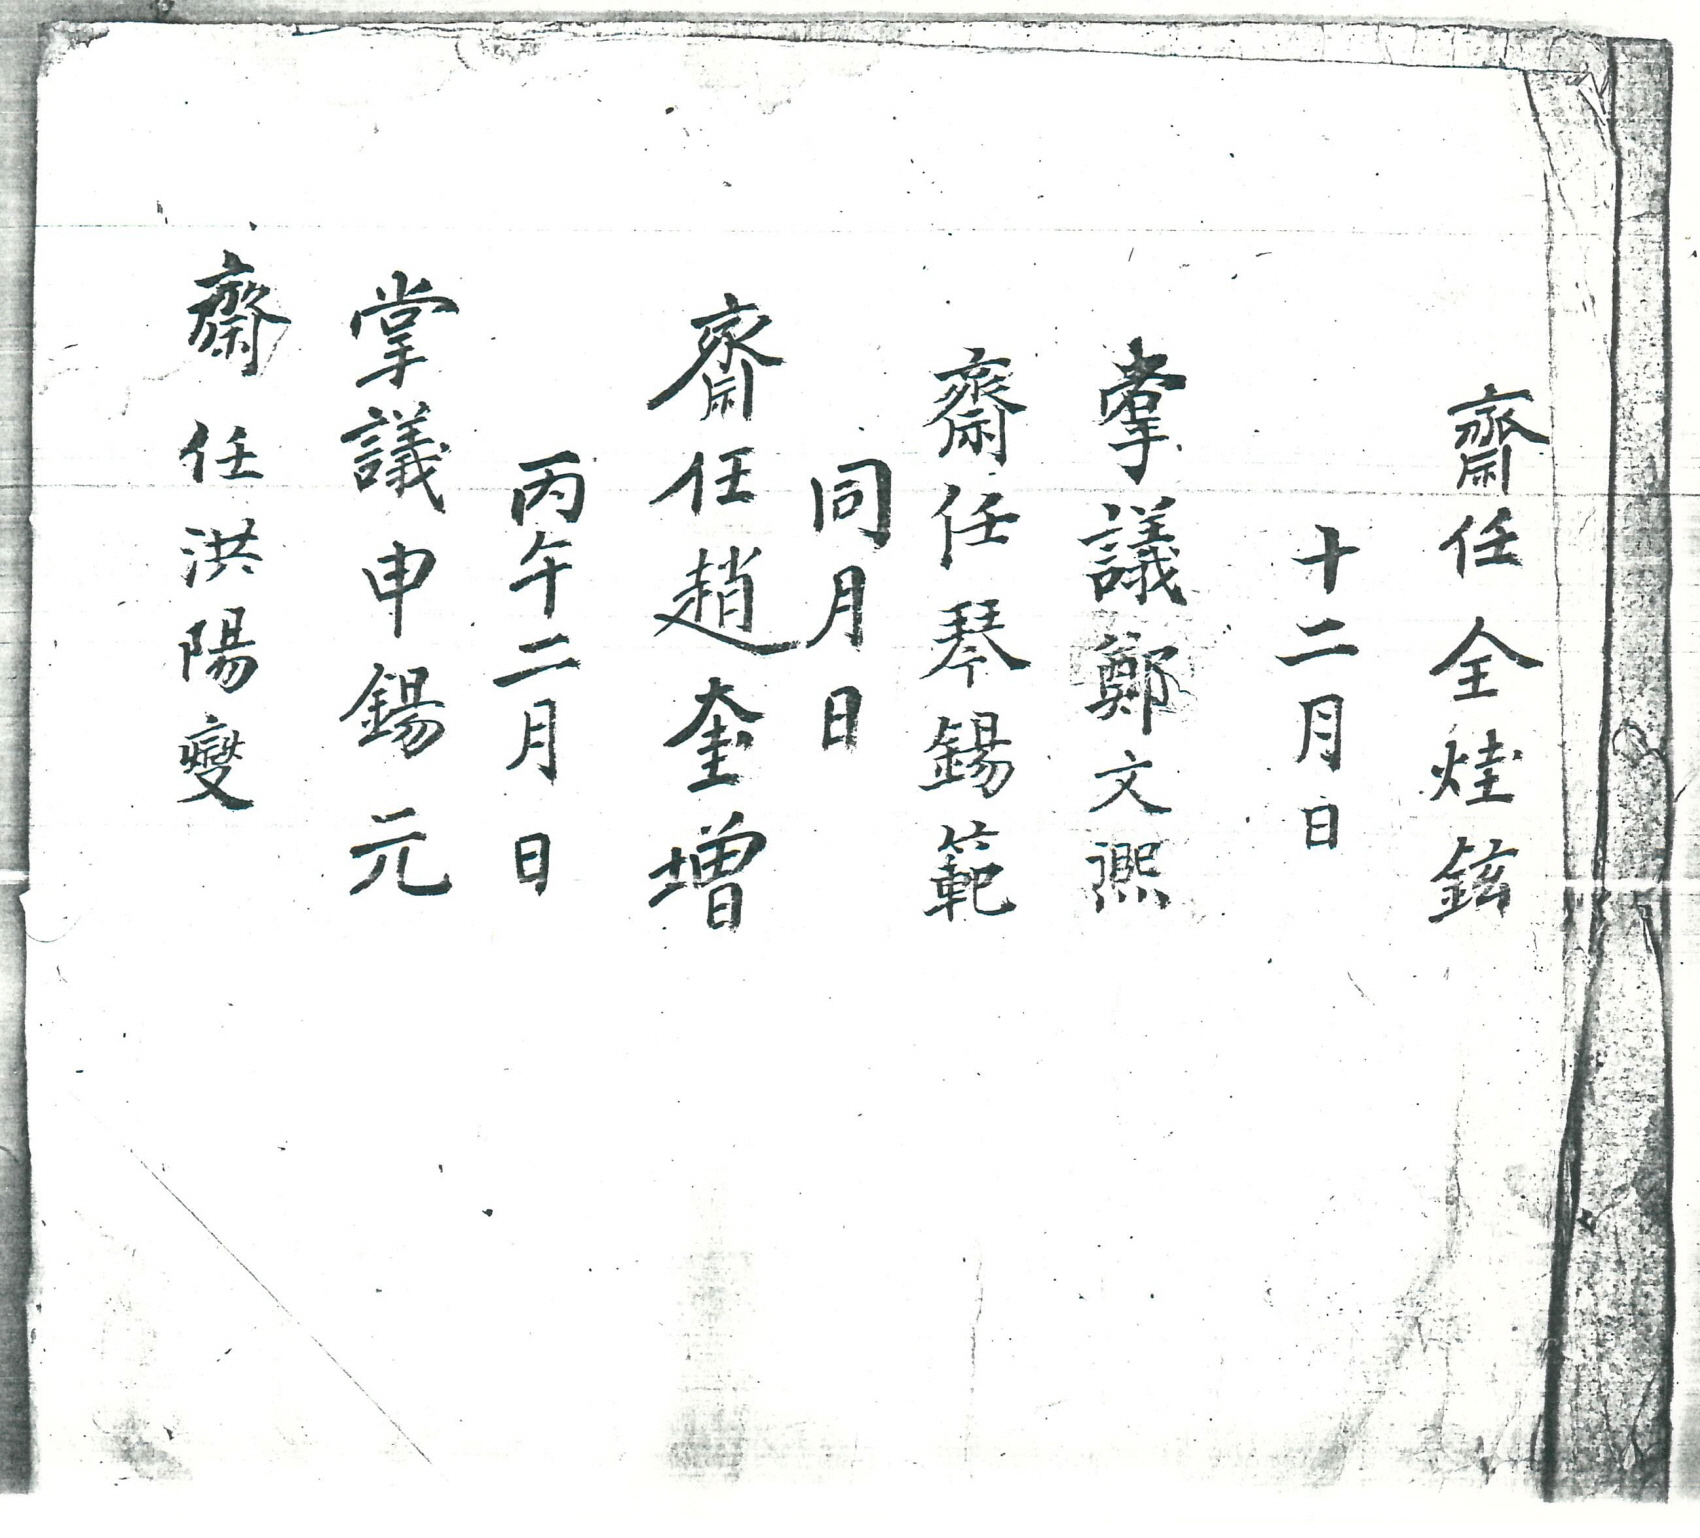 齋任全煃鉉
十二月日
掌議鄭文熙
齋任琴錫範
同月日
齋任趙奎增
丙午二月日
掌議申錫元
齋任洪陽燮